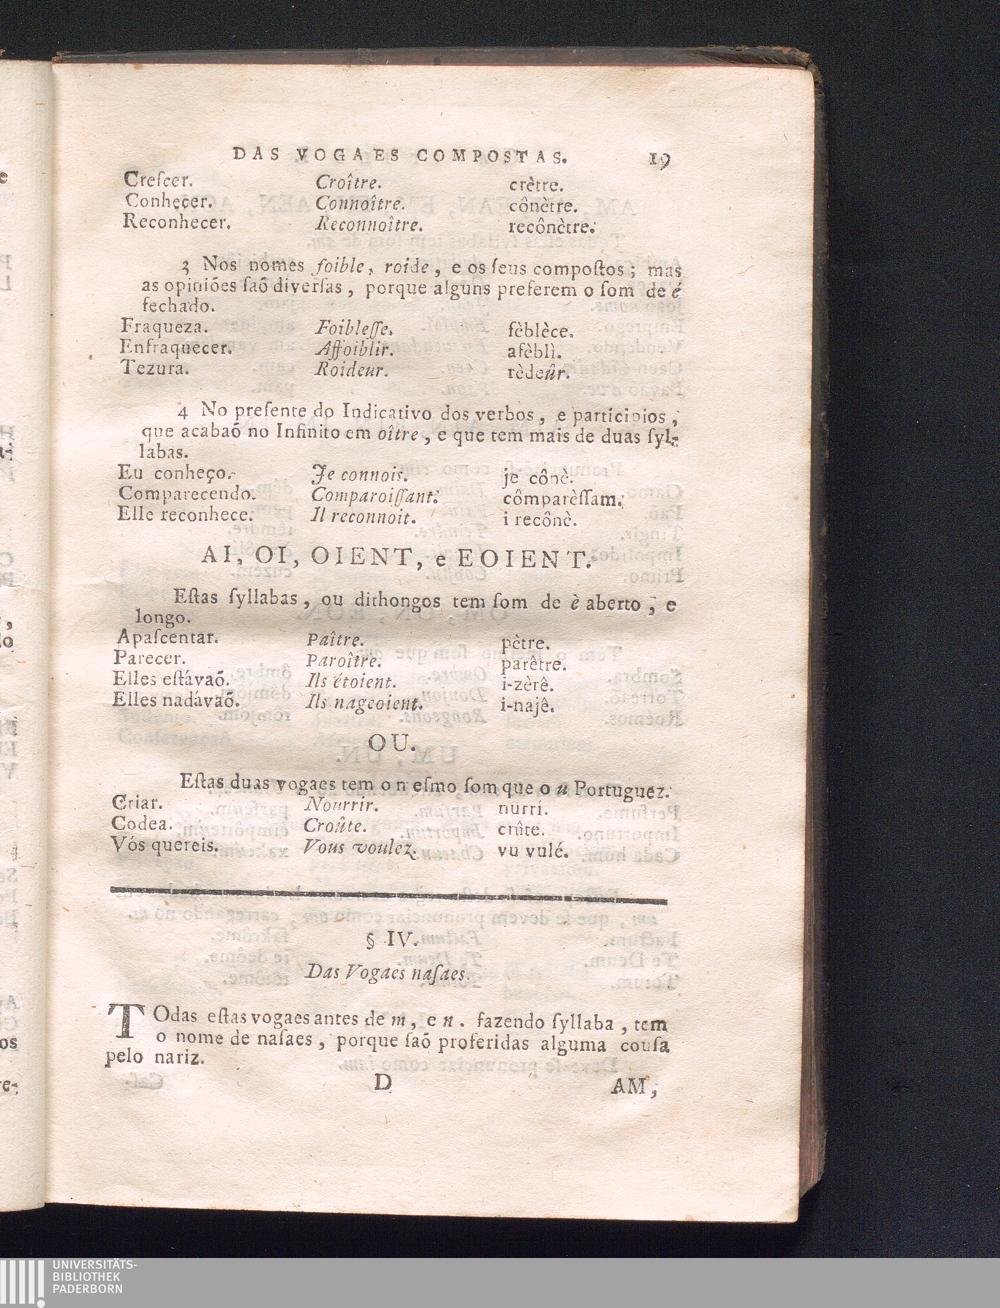 DAS VOGAES COMPOSTAS. 19
Creſcer. Croître. crètre.
Conheçer. Connoître. cônètre.
Reconhecer. Reconnoître. recônètre.
3 Nos nomes foible, roide, e os ſeus compoſtos; mas
as opiniões ſaõ diverſas, porque alguns preferem o ſom de é
fechado.
Fraqueza. Foibleſſe. fèblèce.
Enfraquecer. Affoiblir. afèblì.
Tezura. Roideur. rèdeûr.
4 No preſente do Indicativo dos verbos, e participios,
que acabaõ no Infinito em oître, e que tem mais de duas ſyl-
labas.
Eu conheço. Je connois. je cônè.
Comparecendo. Comparoiſſant. cômparèſſam.
Elle reconhece. Il reconnoit. i recônè.
AI, OI, OIENT, e EOIENT.
Eſtas ſyllabas, ou dithongos tem ſom de è aberto, e
longo.
Apaſcentar. Paître. pètre.
Parecer. Paroître. parêtre.
Elles eſtávaõ. Ils étoient. i-zèrê.
Elles nadávaõ. Ils nageoient. i-najê.
OU.
Eſtas duas vogaes tem o meſmo ſom que o u Portuguez.
Criar. Nourrir. nurrí.
Codea. Croûte. crûte.
Vós quereis. Vous voulez. vu vulé.
§ IV.
Das Vogaes naſaes.
TOdas eſtas vogaes antes de m, e n. fazendo ſyllaba, tem
o nome de naſaes, porque ſaõ proferidas alguma couſa
pelo nariz.
D AM,
UNIVERSITÄTS-
BIBLIOTHEK
PADERBORN